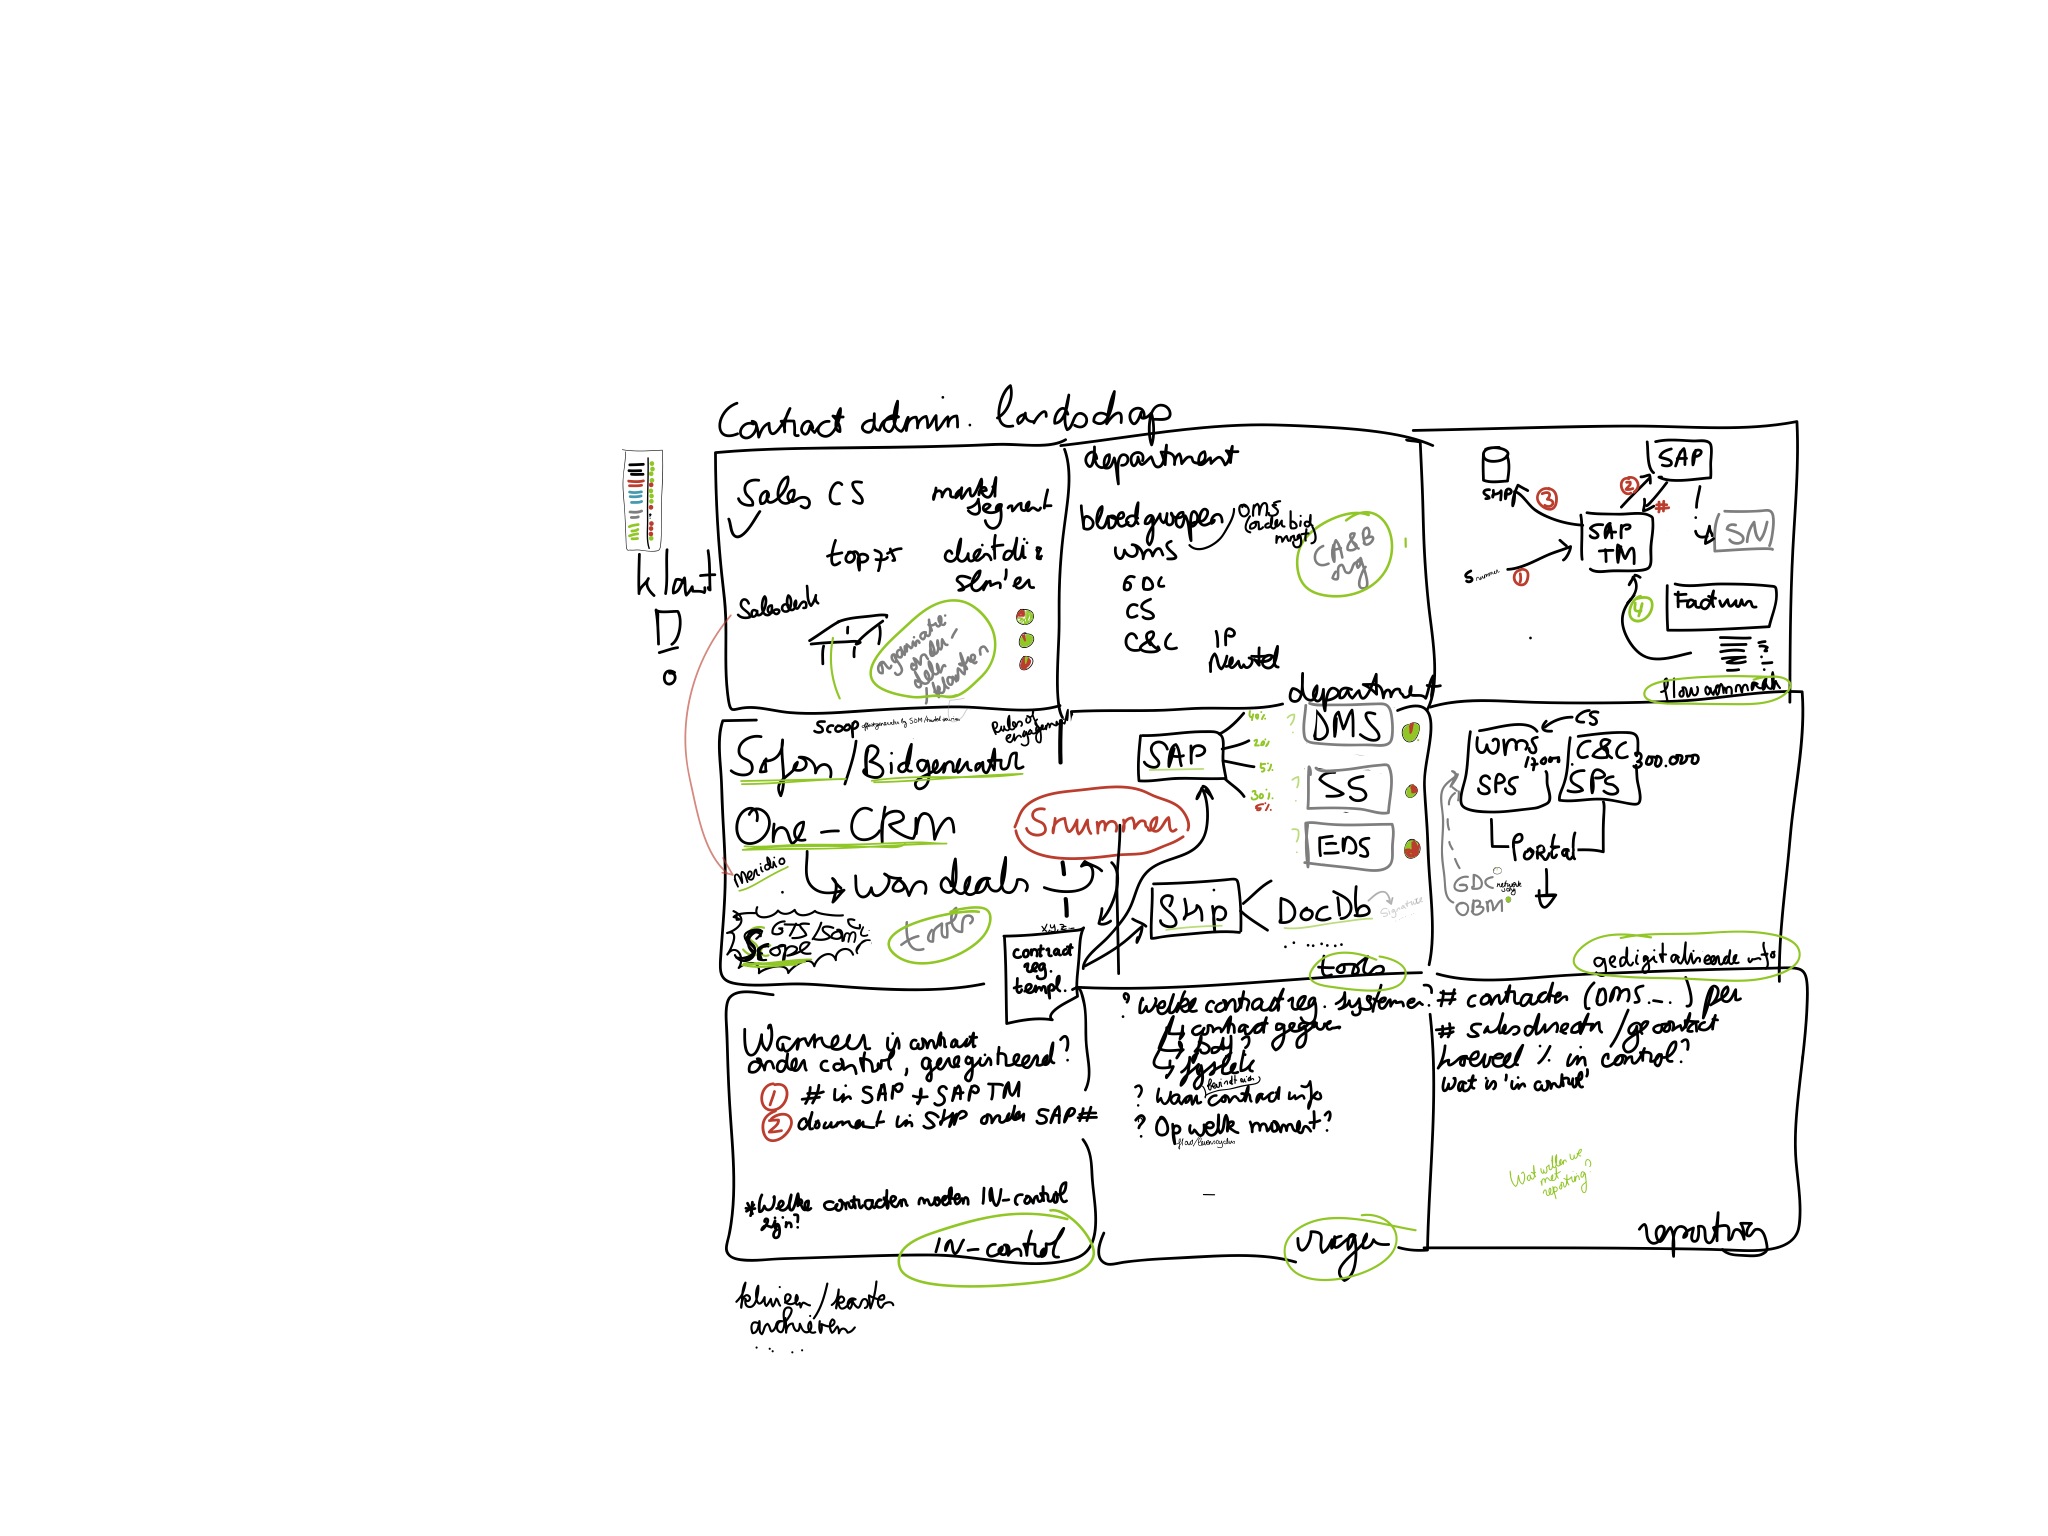 Contract admin. landschap
klant
Sales CS
markt
segment
top 75
clientdi &
slm'er
Salesdesk
organisatie
onder-
delen
/klanten
department
bloedgroepen
OMS
(order bid
mngt)
WMS
GDC
CS
C&C
IP
Newtel
CA&B
org
SHP
3
2
SAP
#
SAP
TM
SN
1
4
Factuur
flow aanmaak
Scoop
Rules of
engagement
Sofon / Bidgenerator
One-CRM
Meridio
won deals
GTS/
Scope
tools
Snummer
x.y.z
contract
reg.
templ.
department
SAP
40%
20%
5%
30%
5%
? DMS
? SS
? EDS
SHP
DocDb
Signature
......
tools
CS
WMS
17000
SPS
C&C
300.000
SPS
Portal
GDC network
org
OBM
gedigitaliseerde info
Wanneer is contract
onder control, geregistreerd?
1 # in SAP + SAP TM
2 document in SHP onder SAP#
* Welke contracten moeten IN-control
zijn?
IN-control
? Welke contract reg. systemen?
contract gegeven
bevindt zich
? Waar contract info
? Op welk moment?
vragen
# contracten (OMS...) per
# salesdirector /
hoeveel % in control?
Wat is 'in control'
Wat willen we
met
reporting?
reporting
kluizen / kasten
archieven
....